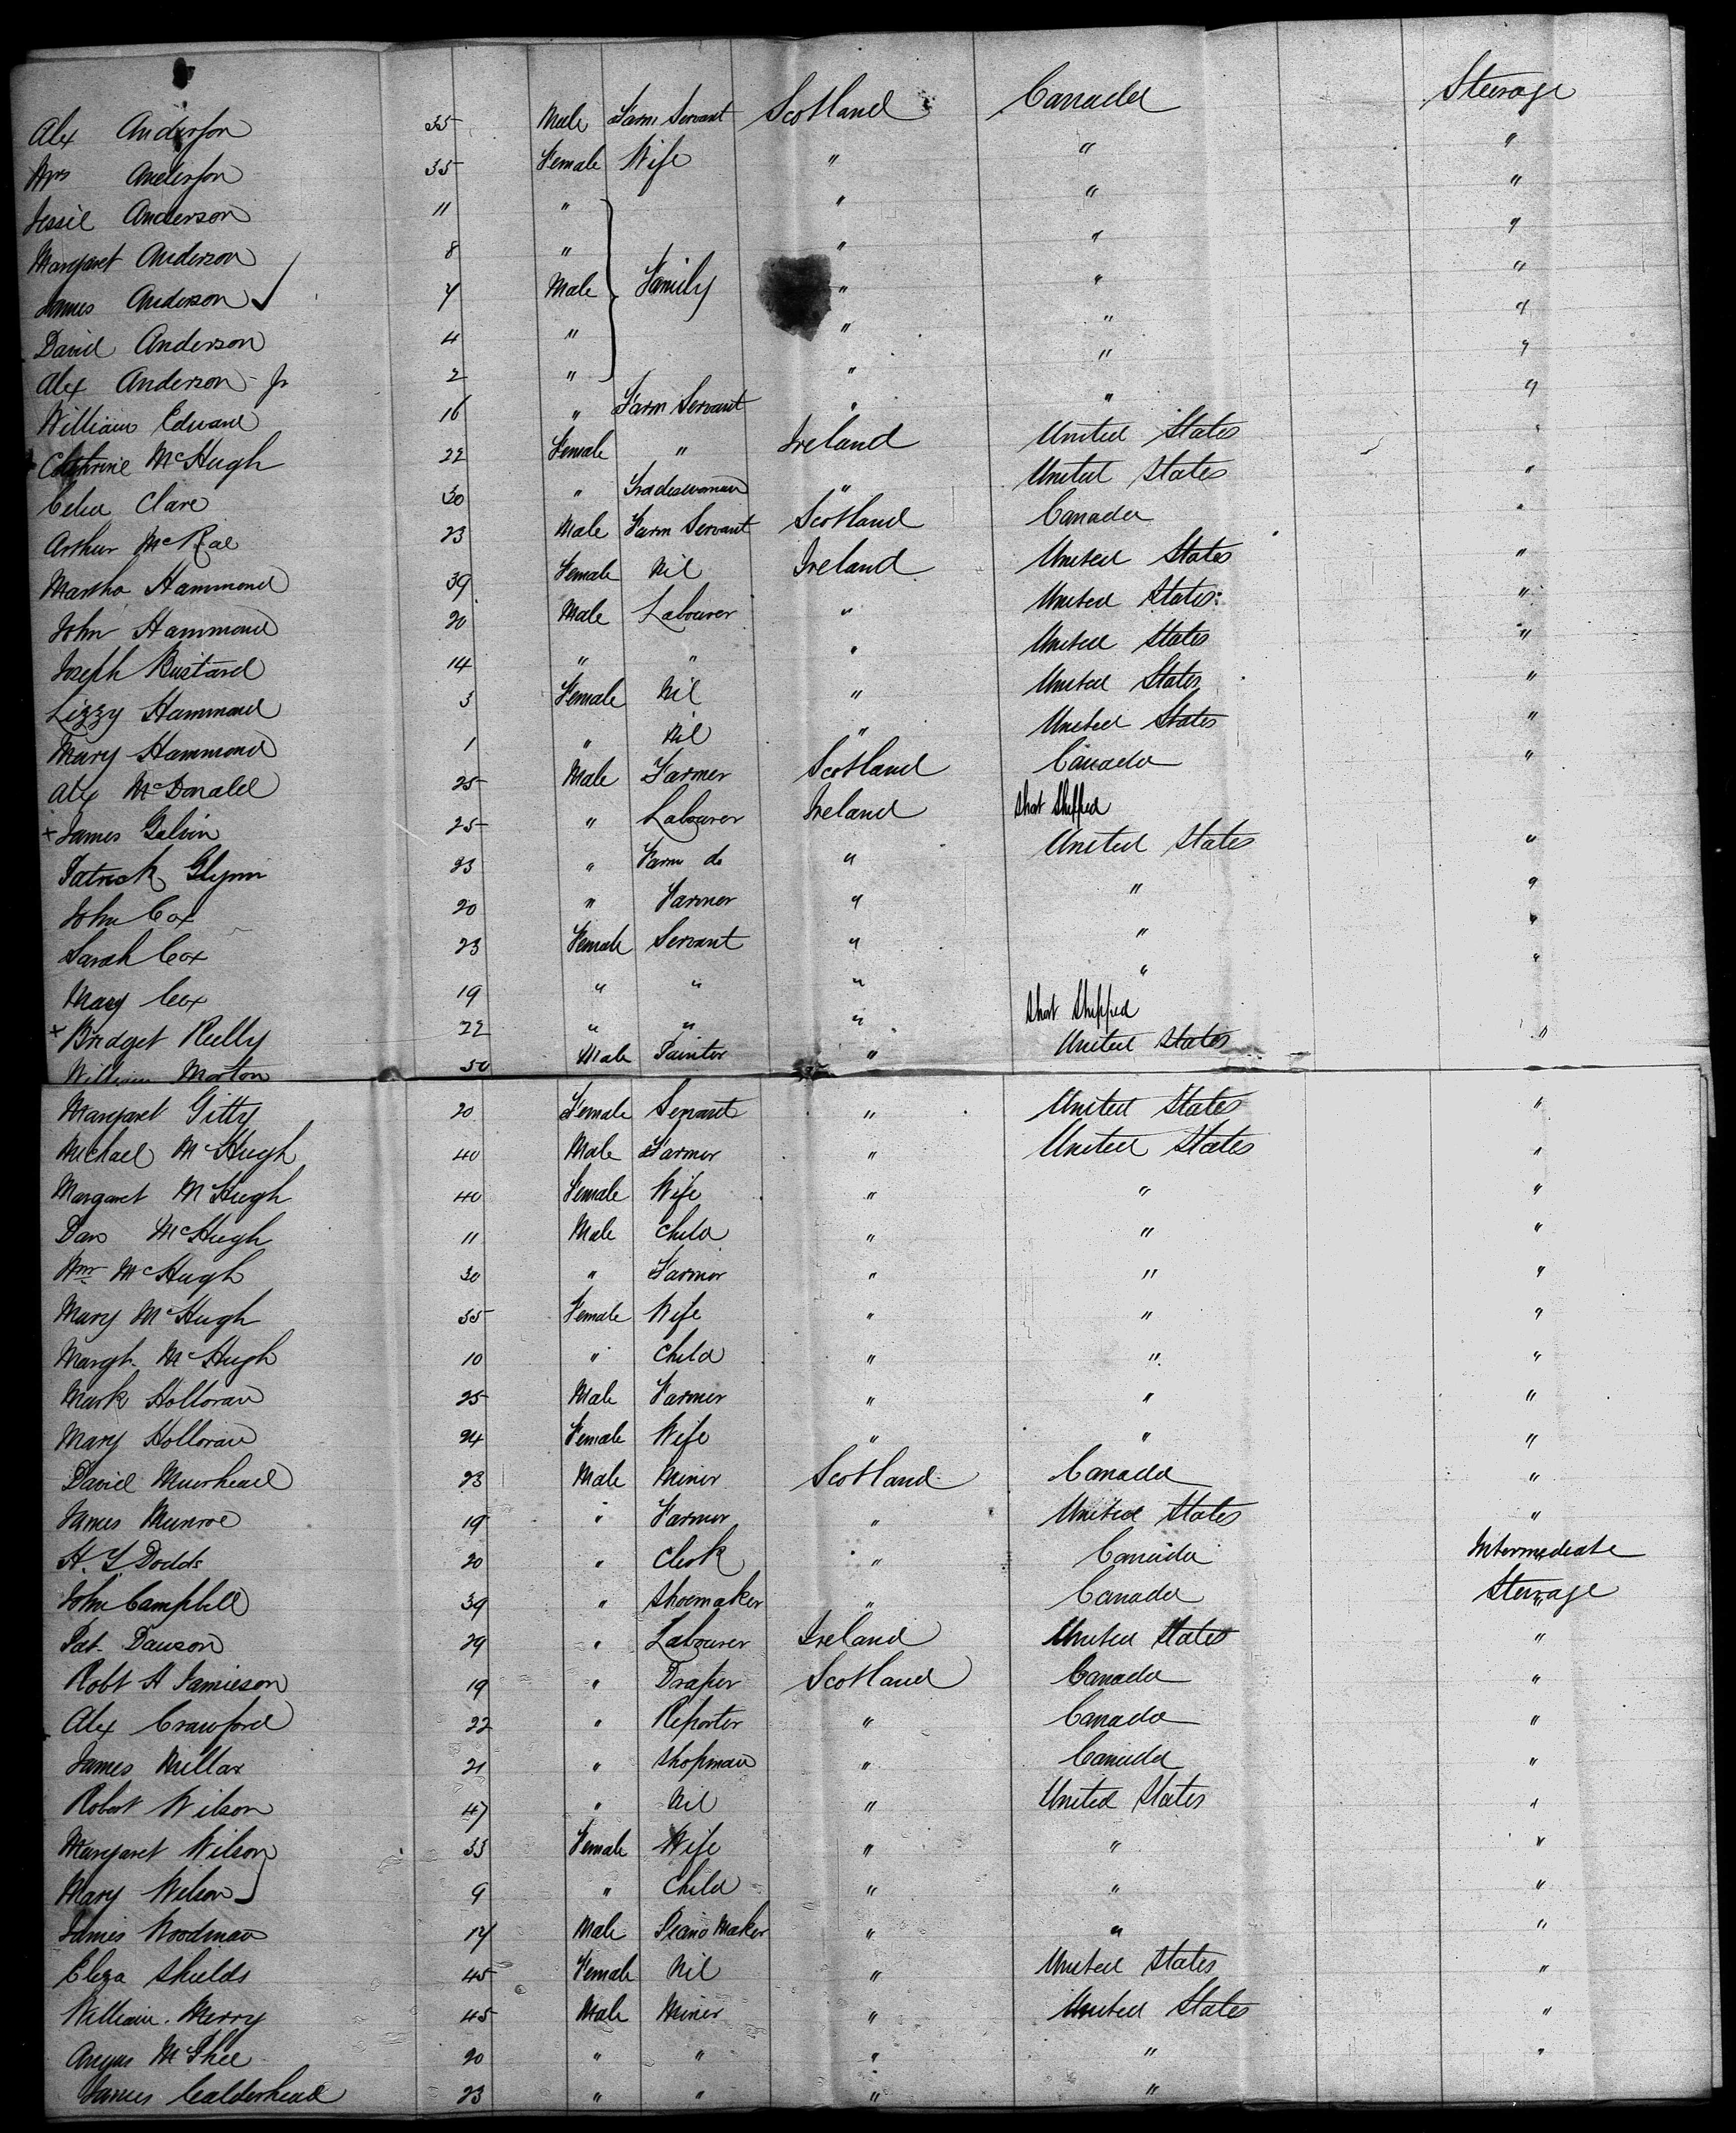 Alex Anderson 35 Male Farm Servant Scotland Canada Steerage
Mrs Anderson 35 Female Wife " " "
Jessie Anderson 11 " " " "
Margaret Anderson 8 " " " "
James Anderson 7 Male Family " " "
David Anderson 4 " " " "
Alex Anderson Jr 2 " " " "
William Edward 16 " Farm Servant " " "
Catherine McHugh 22 Female " Ireland United States "
Celia Clare 30 " Tradeswoman " United States "
Arthur McRae 23 Male Farm Servant Scotland Canada "
Martha Hammond 39 Female Nil Ireland United States "
John Hammond 20 Male Labourer " United States "
Joseph Bustard 14 " " " United States "
Lizzy Hammond 3 Female Nil " United States "
Mary Hammond 1 " Nil " United States "
Alex McDonald 25 Male Farmer Scotland Canada "
+ James Galvin 25 " Labourer Ireland Short Shipped
Patrick Glynn 23 " Farm do " United States "
John Cox 20 " Farmer " " "
Sarah Cox 23 Female Servant " " "
Mary Cox 19 " " " " "
+ Bridget Reilly 22 " " " Short Shipped
William Morton 50 Male Painter " United States "
Margaret Gitty 20 Female Servant " United States "
Michael McHugh 40 Male Farmer " United States "
Margaret McHugh 40 Female Wife " " "
Dan McHugh 11 Male Child " " "
Wm McHugh 30 " Farmer " " "
Mary McHugh 35 Female Wife " " "
Margt McHugh 10 " Child " " "
Mark Holloran 25 Male Farmer " " "
Mary Holloran 24 Female Wife " " "
David Muirhead 23 Male Miner Scotland Canada "
James Munroe 19 " Farmer " United States "
H. Y Dodds 20 " Clerk " Canada Intermediate
John Campbell 39 " Shoemaker " Canada Steerage
Pat. Dawson 29 " Labourer Ireland United States "
Robt H Jamieson 19 " Draper Scotland Canada "
Alex Crawford 22 " Reporter " Canada "
James Millar 21 " Shopman " Canada "
Robert Wilson 47 " Nil " United States "
Margaret Wilson 33 Female Wife " " "
Mary Wilson 9 " Child " " "
James Woodman 17 Male Piano Maker " " "
Eliza Shields 45 Female Nil " United States "
William Merry 45 Male Miner " United States "
Angus McPhee 20 " " " " "
James Calderhead 23 " " " "